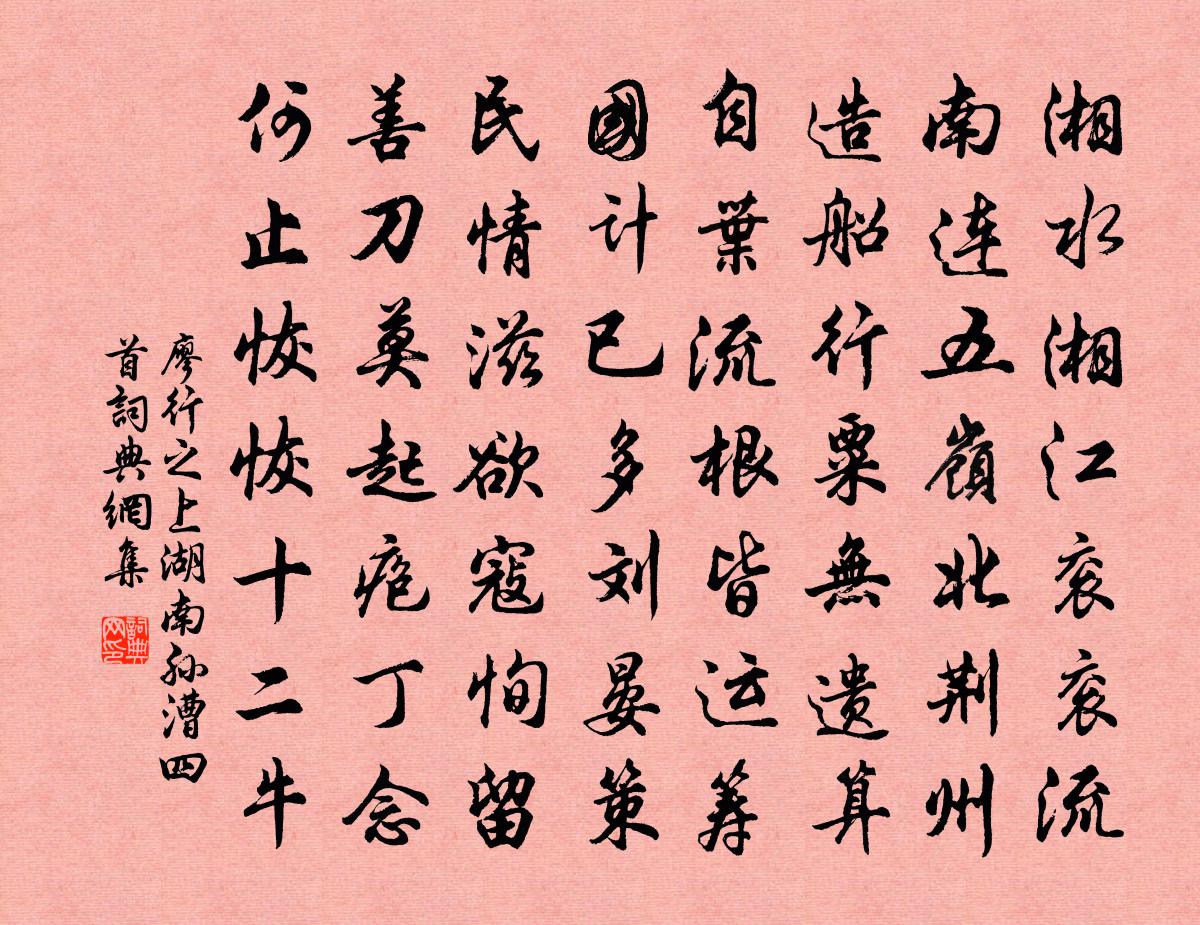 湘水湘江衮衮流
南連五嶺北荆州
造船行粟無遗算
自葉流根皆运筹
國计已多刘晏策
民情滋欲寇恂留
善刀莫起疱丁念
何止恢恢十二牛
廖行之上湖南孙漕四
首詞典網集
詞典
网印